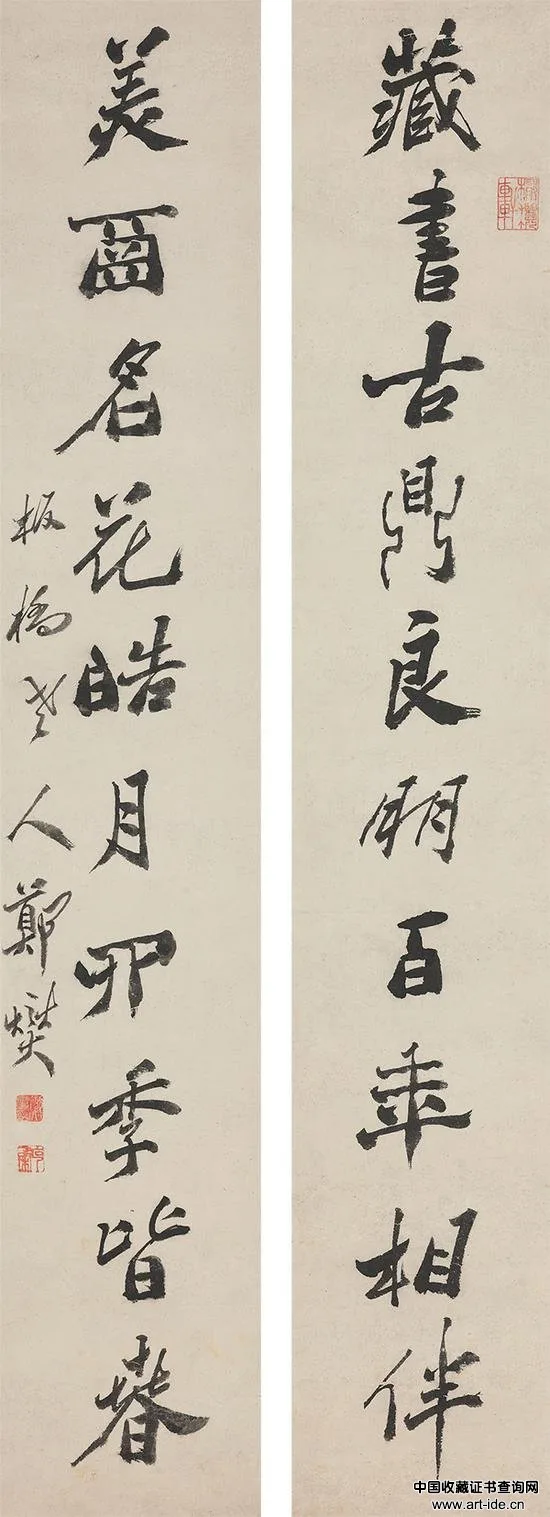 藏書古鼎良朋百年相伴
美画名花皓月四季皆春
板橋老人鄭燮
中国收藏证书查询网
www.art-ide.cn